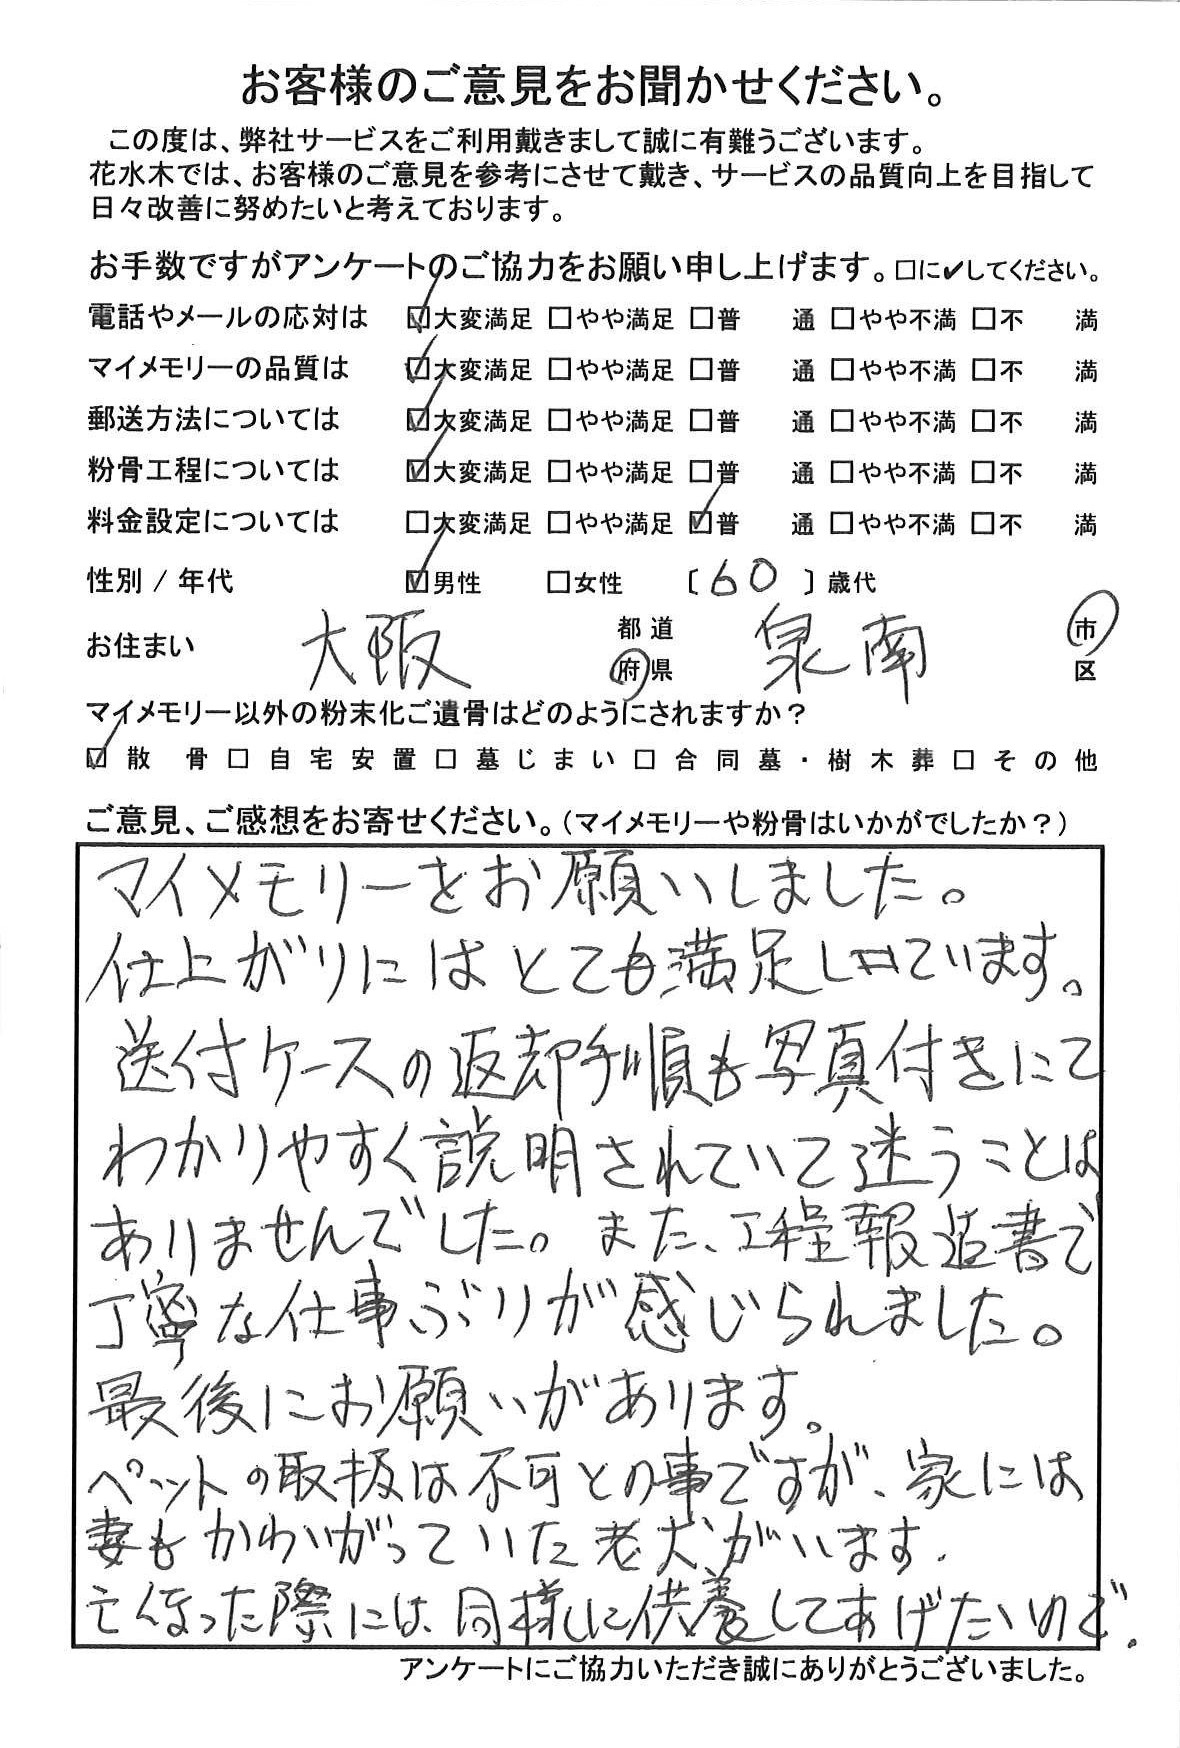 お客様のご意見をお聞かせください。
この度は、弊社サービスをご利用戴きまして誠に有難うございます。
花水木では、お客様のご意見を参考にさせて戴き、サービスの品質向上を目指して
日々改善に努めたいと考えております。
お手数ですがアンケートのご協力をお願い申し上げます。□に✔してください。
電話やメールの応対は ☑大変満足 □やや満足 □普 通 □やや不満 □不 満
マイメモリーの品質は ☑大変満足 □やや満足 □普 通 □やや不満 □不 満
郵送方法については ☑大変満足 □やや満足 □普 通 □やや不満 □不 満
粉骨工程については ☑大変満足 □やや満足 □普 通 □やや不満 □不 満
料金設定については □大変満足 □やや満足 ☑普 通 □やや不満 □不 満
性別 / 年代 ☑男性 □女性 〔60〕歳代
お住まい 大阪 都道府県 泉南 市区
マイメモリー以外の粉末化ご遺骨はどのようにされますか？
☑散 骨 □自宅安置 □墓じまい □合同墓・樹木葬 □その他
ご意見、ご感想をお寄せください。（マイメモリーや粉骨はいかがでしたか？）
マイメモリーをお願いしました。
仕上がりにはとても満足しています。
送付ケースの返却手順も写真付きにて
わかりやすく説明されていて迷うことは
ありませんでした。また、工程報告書で
丁寧な仕事ぶりが感じられました。
最後にお願いがあります。
ペットの取扱は不可との事ですが、家には
妻もかわいがっていた老犬がいます。
亡くなった際には、同様に供養してあげたいので、
アンケートにご協力いただき誠にありがとうございました。